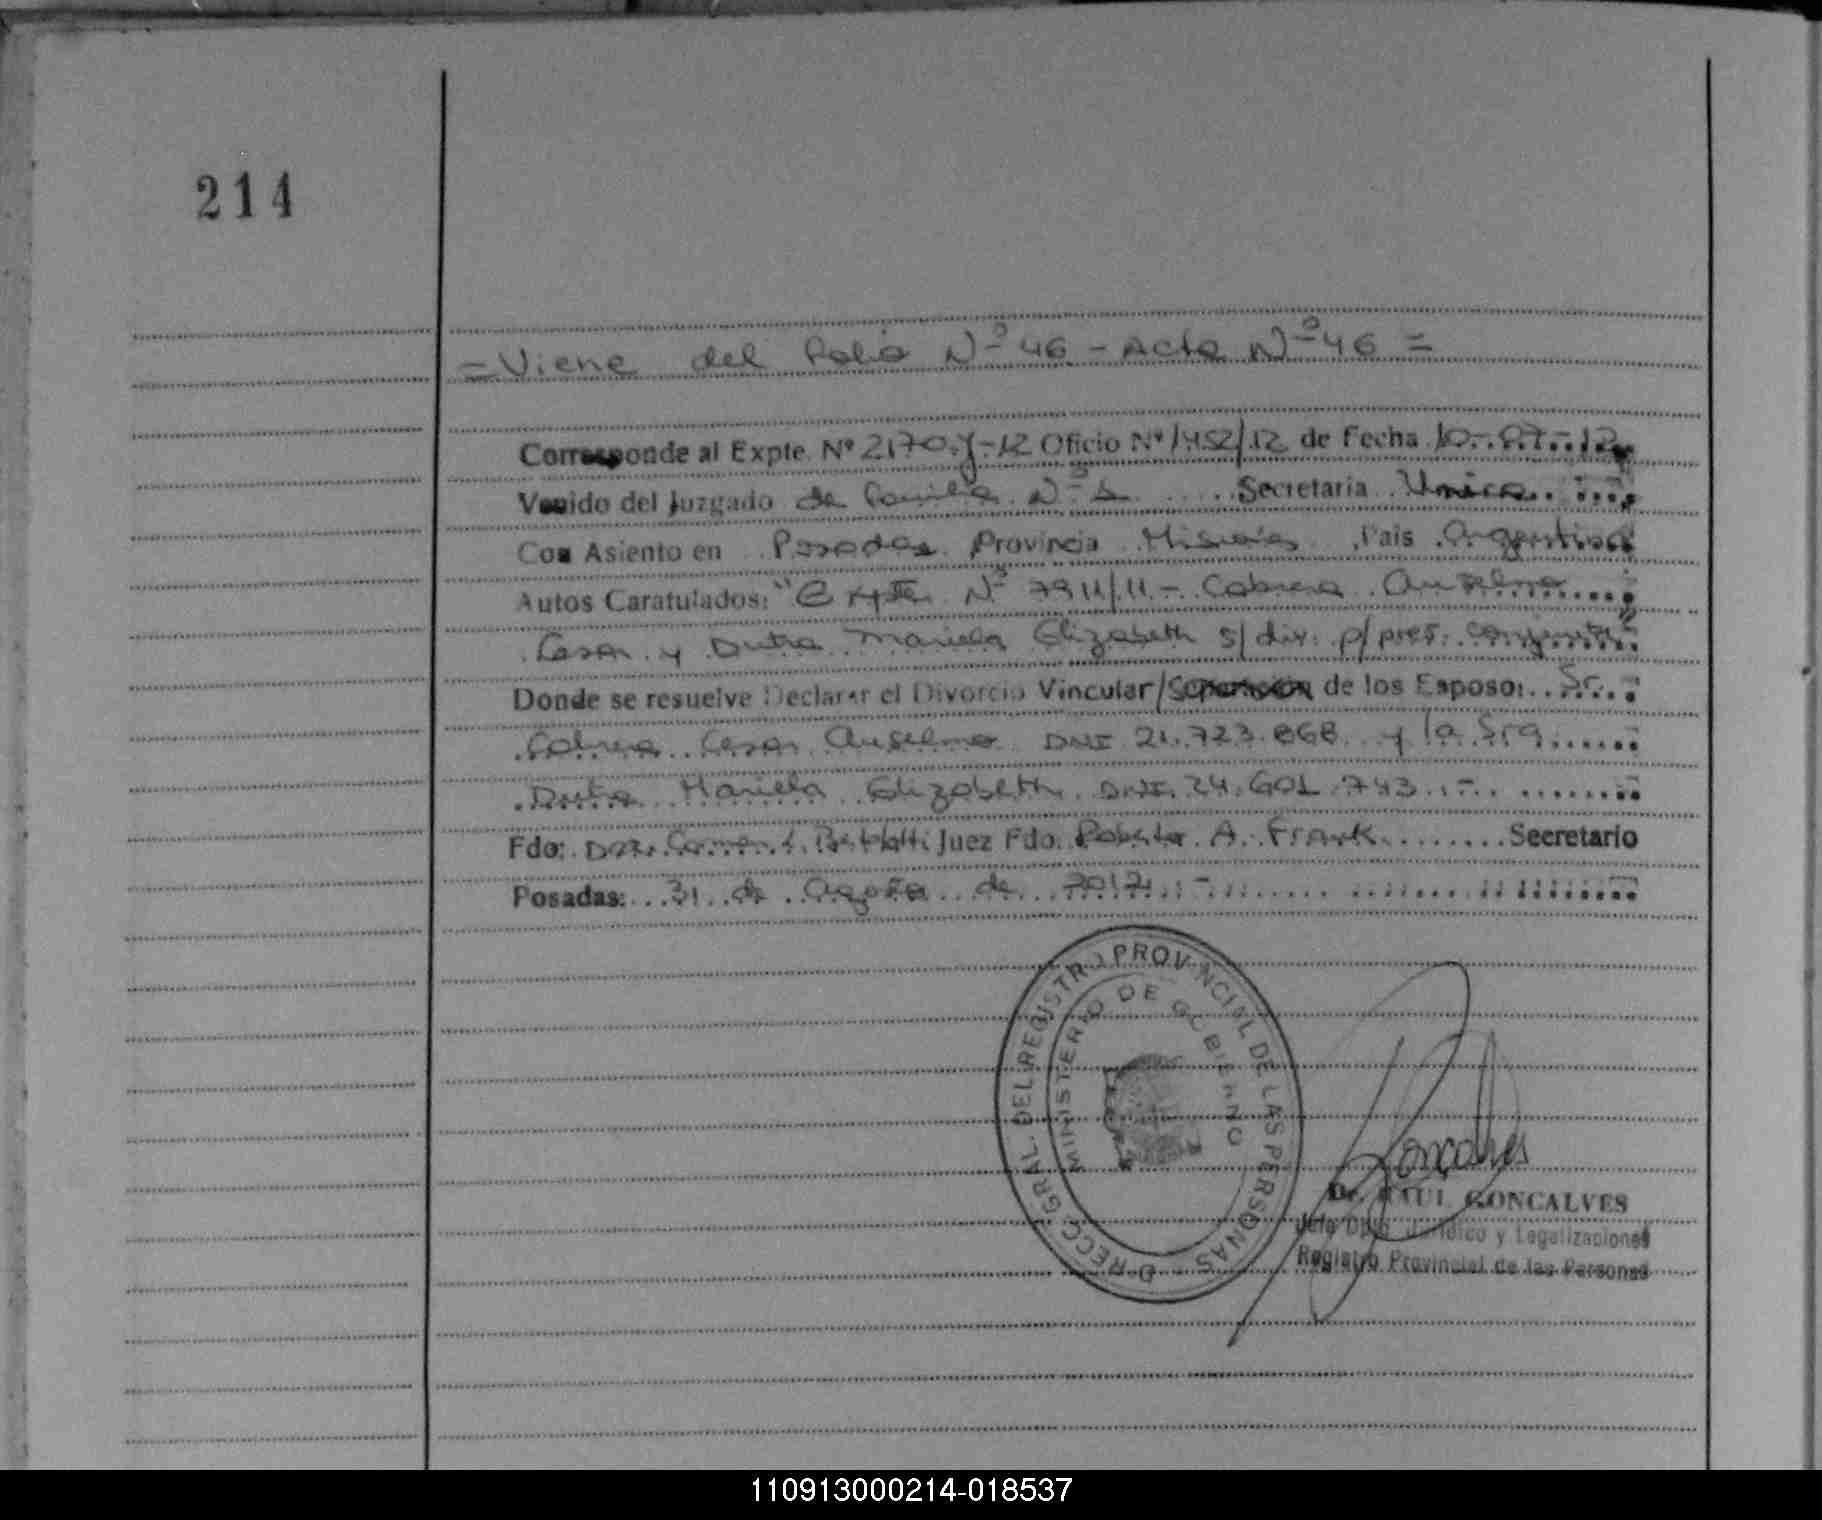 214
= Viene del Folio Nº 46 - Acta Nº 46 =
Corresponde al Expte. Nº 2170-J-12 Oficio Nº 1452/12 de Fecha 10-07-12
Venido del Juzgado de Familia Nº 1 Secretaria Unica
Con Asiento en Posadas Provincia Misiones Pais Argentina
Autos Caratulados: "Expte. Nº 7911/11.- Cabrera Anselmo
Cesar y Dutra Mariela Elizabeth s/ div. p/ pres. conjunta"
Donde se resuelve Declarar el Divorcio Vincular/Separacion de los Esposo: Sr.
Cabrera Cesar Anselmo DNI 21.723.868 y la Sra
Dutra Mariela Elizabeth DNI. 24.601.743.-
Fdo: Dra. Carmen Juez Fdo. Roberto A. Frank Secretario
Posadas: 31 de Agosto de 2012.-
DIRECC. GRAL. DEL REGISTRO PROVINCIAL DE LAS PERSONAS
MINISTERIO DE GOBIERNO
Goncalves
Dr. RAUL GONCALVES
Jefe Dpto. Juridico y Legalizaciones
Registro Provincial de las Personas
110913000214-018537